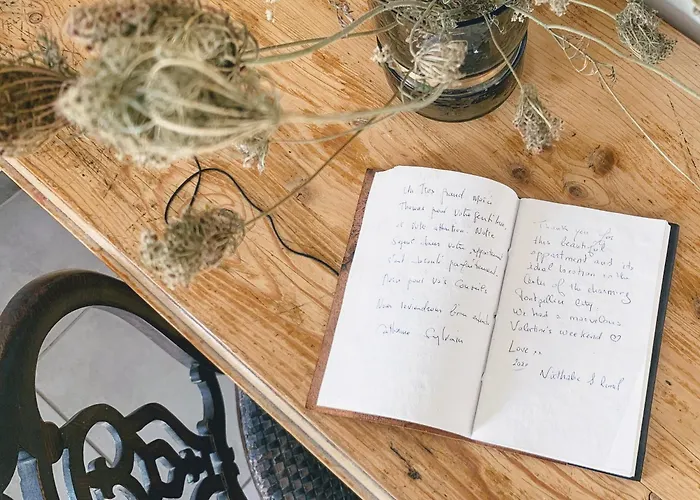 Un Très grand Merci
Thomas pour votre gentillesse
et votre attention. Notre
séjour dans votre appartement
s'est déroulé parfaitement.
Merci pour vos conseils
Nous reviendrons
Catherine Sylvain
Thank you for
this beautiful
appartment and its
ideal location in the
center of the charming
Montpellier City.
We had a marvelous
Valentine's weekend ♡
Love xx
2020
Nathalie &